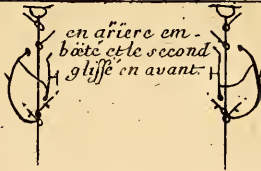 en ariere em-
boeté et le second
glissé en avant.